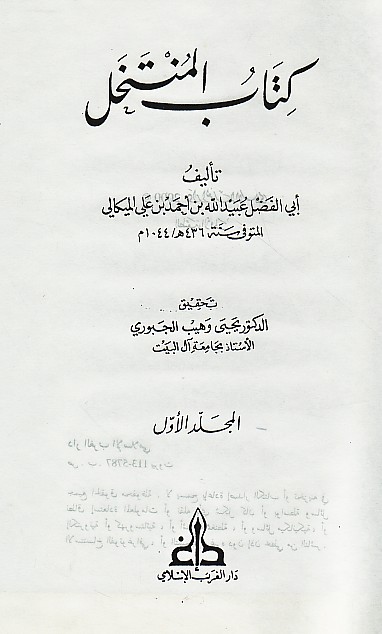 كِتَابُ المُنْتَخَل
تأليفُ
أبي الفَضْل عُبَيْد الله بن أحْمَد بْن عَلي الميكالي
المتوفى سَنَة ٤٣٦ هـ / ١٠٤٤ م
تَحقِيق
الدكتور يَحْيَى وَهيب الجبُوري
الأستاذ بجَامِعَة آل البَيْت
المجَلّد الأوّل
دَار الغَربْ الإسْلامي